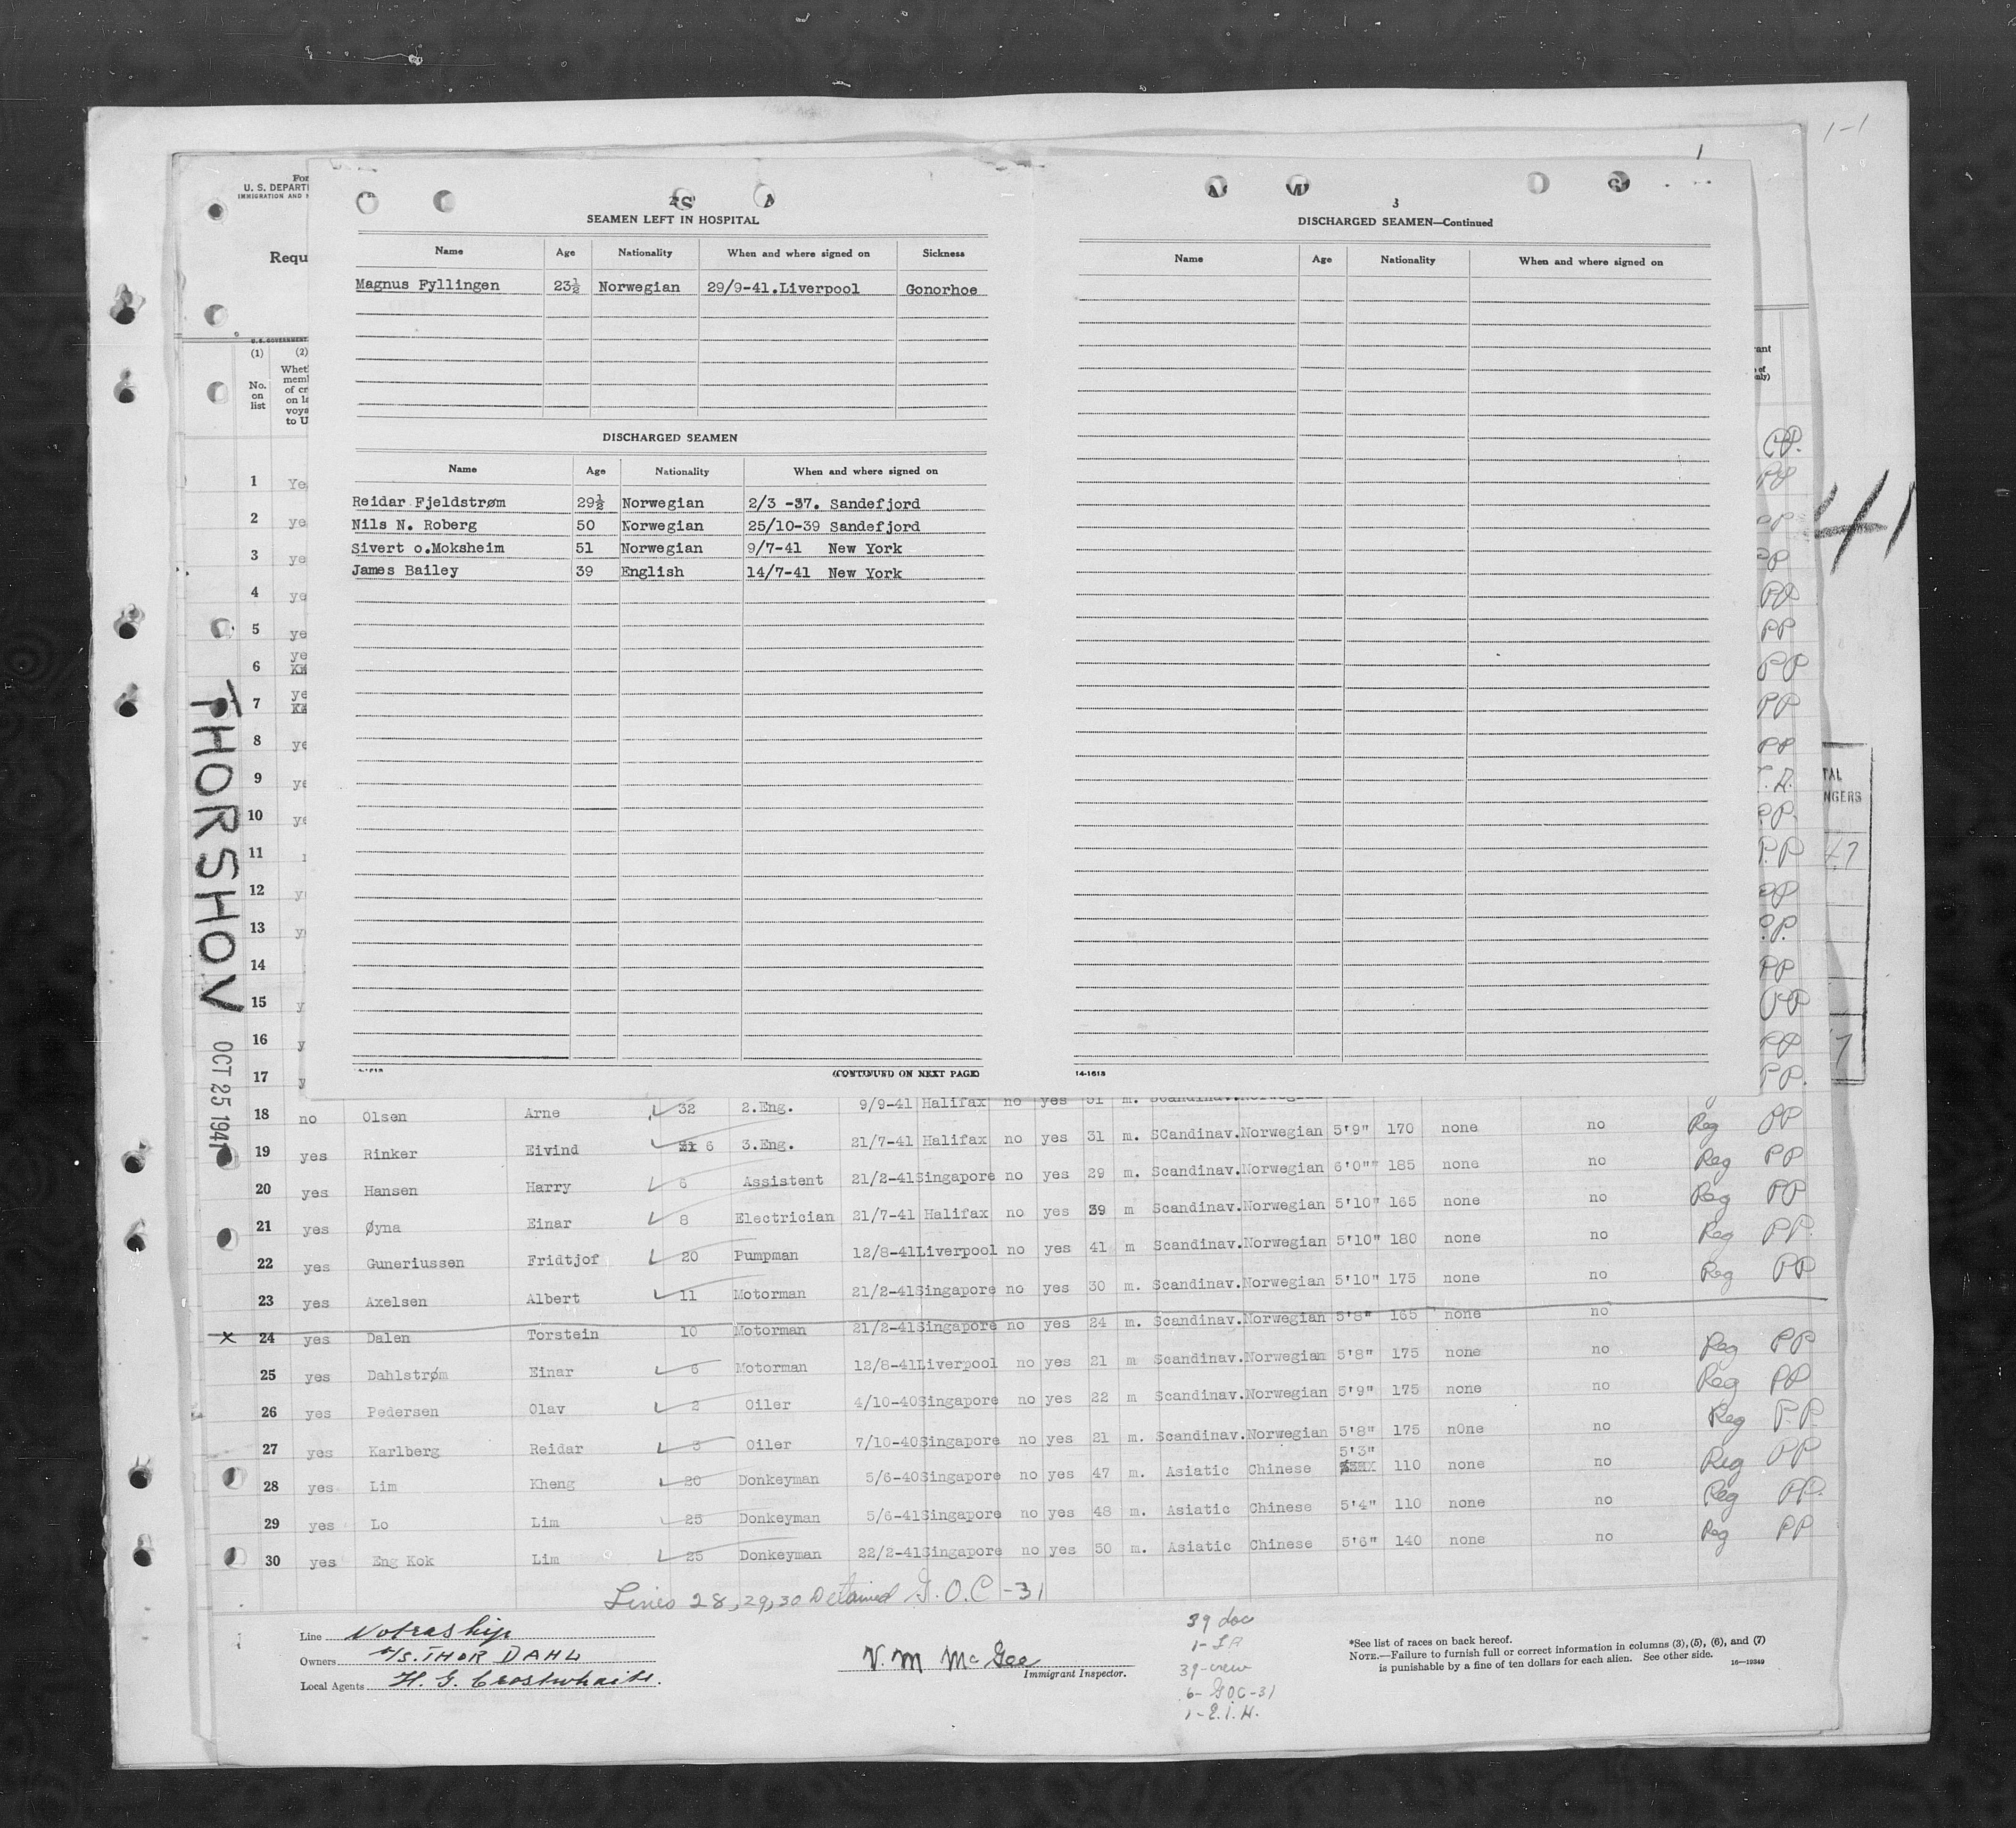 1-1
1
For
U. S. DEPART
IMMIGRATION AND
Requ
SEAMEN LEFT IN HOSPITAL
Name Age Nationality When and where signed on Sickness
Magnus Fyllingen 23½ Norwegian 29/9-41.Liverpool Gonorhoe
DISCHARGED SEAMEN
Name Age Nationality When and where signed on
Reidar Fjeldstrøm 29½ Norwegian 2/3 -37. Sandefjord
Nils N. Roberg 50 Norwegian 25/10-39 Sandefjord
Sivert o.Moksheim 51 Norwegian 9/7-41 New York
James Bailey 39 English 14/7-41 New York
(CONTINUED ON NEXT PAGE)
3
DISCHARGED SEAMEN—Continued
Name Age Nationality When and where signed on
14-1613
U.S. GOVERNMENT
(1) (2)
No.
on
list
Whet
memb
of cr
on la
voya
to U
1 Ye
2 ye
3 ye
4 ye
5 ye
6 ye
7 ye
8 ye
9 ye
10 ye
11
12 y
13 y
14
15 y
16 y
17 y
THORSHOV
OCT 25 1941
41
TAL
NGERS
18 no Olsen Arne 32 2.Eng. 9/9-41 Halifax no yes 31 m. Scandinav.Norwegian
19 yes Rinker Eivind 6 3.Eng. 21/7-41 Halifax no yes 31 m. SCandinav.Norwegian 5'9" 170 none no Reg PP
20 yes Hansen Harry 6 Assistent 21/2-41Singapore no yes 29 m. Scandinav.Norwegian 6'0"" 185 none no Reg PP
21 yes Øyna Einar 8 Electrician 21/7-41 Halifax no yes 39 m Scandinav.Norwegian 5'10" 165 none no Reg PP
22 yes Guneriussen Fridtjof 20 Pumpman 12/8-41Liverpool no yes 41 m Scandinav.Norwegian 5'10" 180 none no Reg PP.
23 yes Axelsen Albert 11 Motorman 21/2-41Singapore no yes 30 m. Scandinav.Norwegian 5'10" 175 none no Reg PP
x 24 yes Dalen Torstein 10 Motorman 21/2-41Singapore no yes 24 m. Scandinav.Norwegian 5'8" 165 none no
25 yes Dahlstrøm Einar 6 Motorman 12/8-41Liverpool no yes 21 m Scandinav.Norwegian 5'8" 175 none no Reg PP
26 yes Pedersen Olav 2 Oiler 4/10-40Singapore no yes 22 m Scandinav.Norwegian 5'9" 175 none no Reg PP
27 yes Karlberg Reidar 3 Oiler 7/10-40Singapore no yes 21 m. Scandinav.Norwegian 5'8" 175 n0ne no Reg P.P
28 yes Lim Kheng 20 Donkeyman 5/6-40Singapore no yes 47 m. Asiatic Chinese 5'3" 110 none no Reg PP
29 yes Lo Lim 25 Donkeyman 5/6-41Singapore no yes 48 m. Asiatic Chinese 5'4" 110 none no Reg PP.
30 yes Eng Kok Lim 25 Donkeyman 22/2-41Singapore no yes 50 m. Asiatic Chinese 5'6" 140 none no Reg PP
Lines 28, 29, 30 Detained G.O.C-31
Line Notraship
Owners A/S. THOR DAHL
Local Agents H. G. Crostwhaite.
V. M McGee
Immigrant Inspector.
39 doc
39-crew
6- GOC-31
1-E.I.H.
*See list of races on back hereof.
NOTE.—Failure to furnish full or correct information in columns (3), (5), (6), and (7)
is punishable by a fine of ten dollars for each alien. See other side.
16—19349